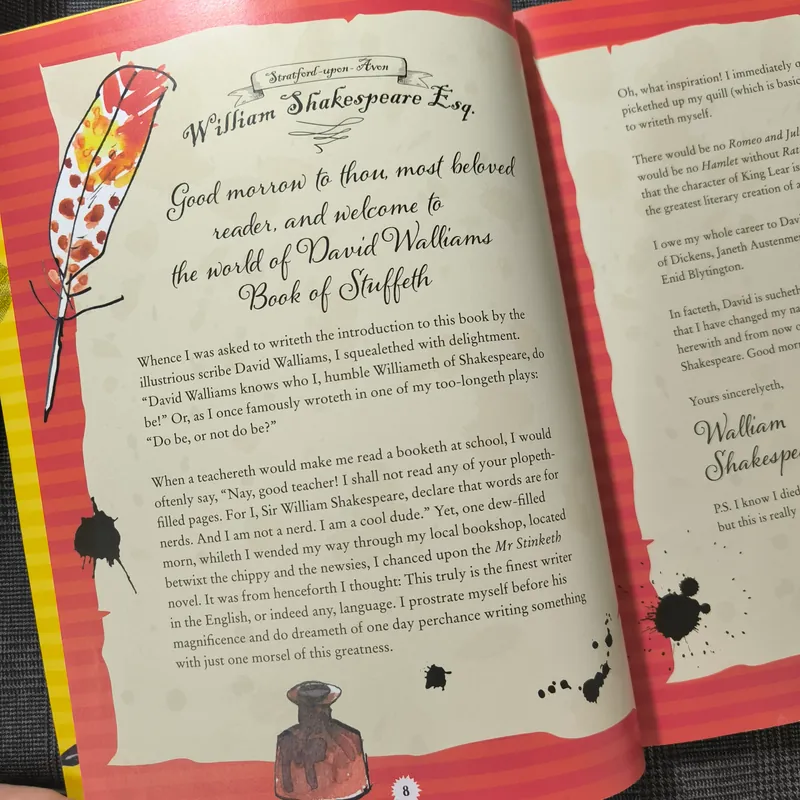 Stratford-upon-Avon
William Shakespeare Esq.
Good morrow to thou, most beloved
reader, and welcome to
the world of David Walliams
Book of Stuffeth
Whence I was asked to writeth the introduction to this book by the
illustrious scribe David Walliams, I squealethed with delightment.
“David Walliams knows who I, humble Williameth of Shakespeare, do
be!” Or, as I once famously wroteth in one of my too-longeth plays:
“Do be, or not do be?”
When a teachereth would make me read a booketh at school, I would
oftenly say, “Nay, good teacher! I shall not read any of your plopeth-
filled pages. For I, Sir William Shakespeare, declare that words are for
nerds. And I am not a nerd. I am a cool dude.” Yet, one dew-filled
morn, whileth I wended my way through my local bookshop, located
betwixt the chippy and the newsies, I chanced upon the Mr Stinketh
novel. It was from henceforth I thought: This truly is the finest writer
in the English, or indeed any, language. I prostrate myself before his
magnificence and do dreameth of one day perchance writing something
with just one morsel of this greatness.
8
Oh, what inspiration! I immediately
pickethed up my quill (which is
to writeth myself.
There would be no Romeo and
would be no Hamlet without
that the character of King Lear is
the greatest literary creation of
I owe my whole career to
of Dickens, Janeth
Enid Blytington.
In facteth, David is sucheth
that I have changed my
herewith and from now
Shakespeare. Good
Yours sincerelyeth,
Walliam
P.S. I know I died
but this is really